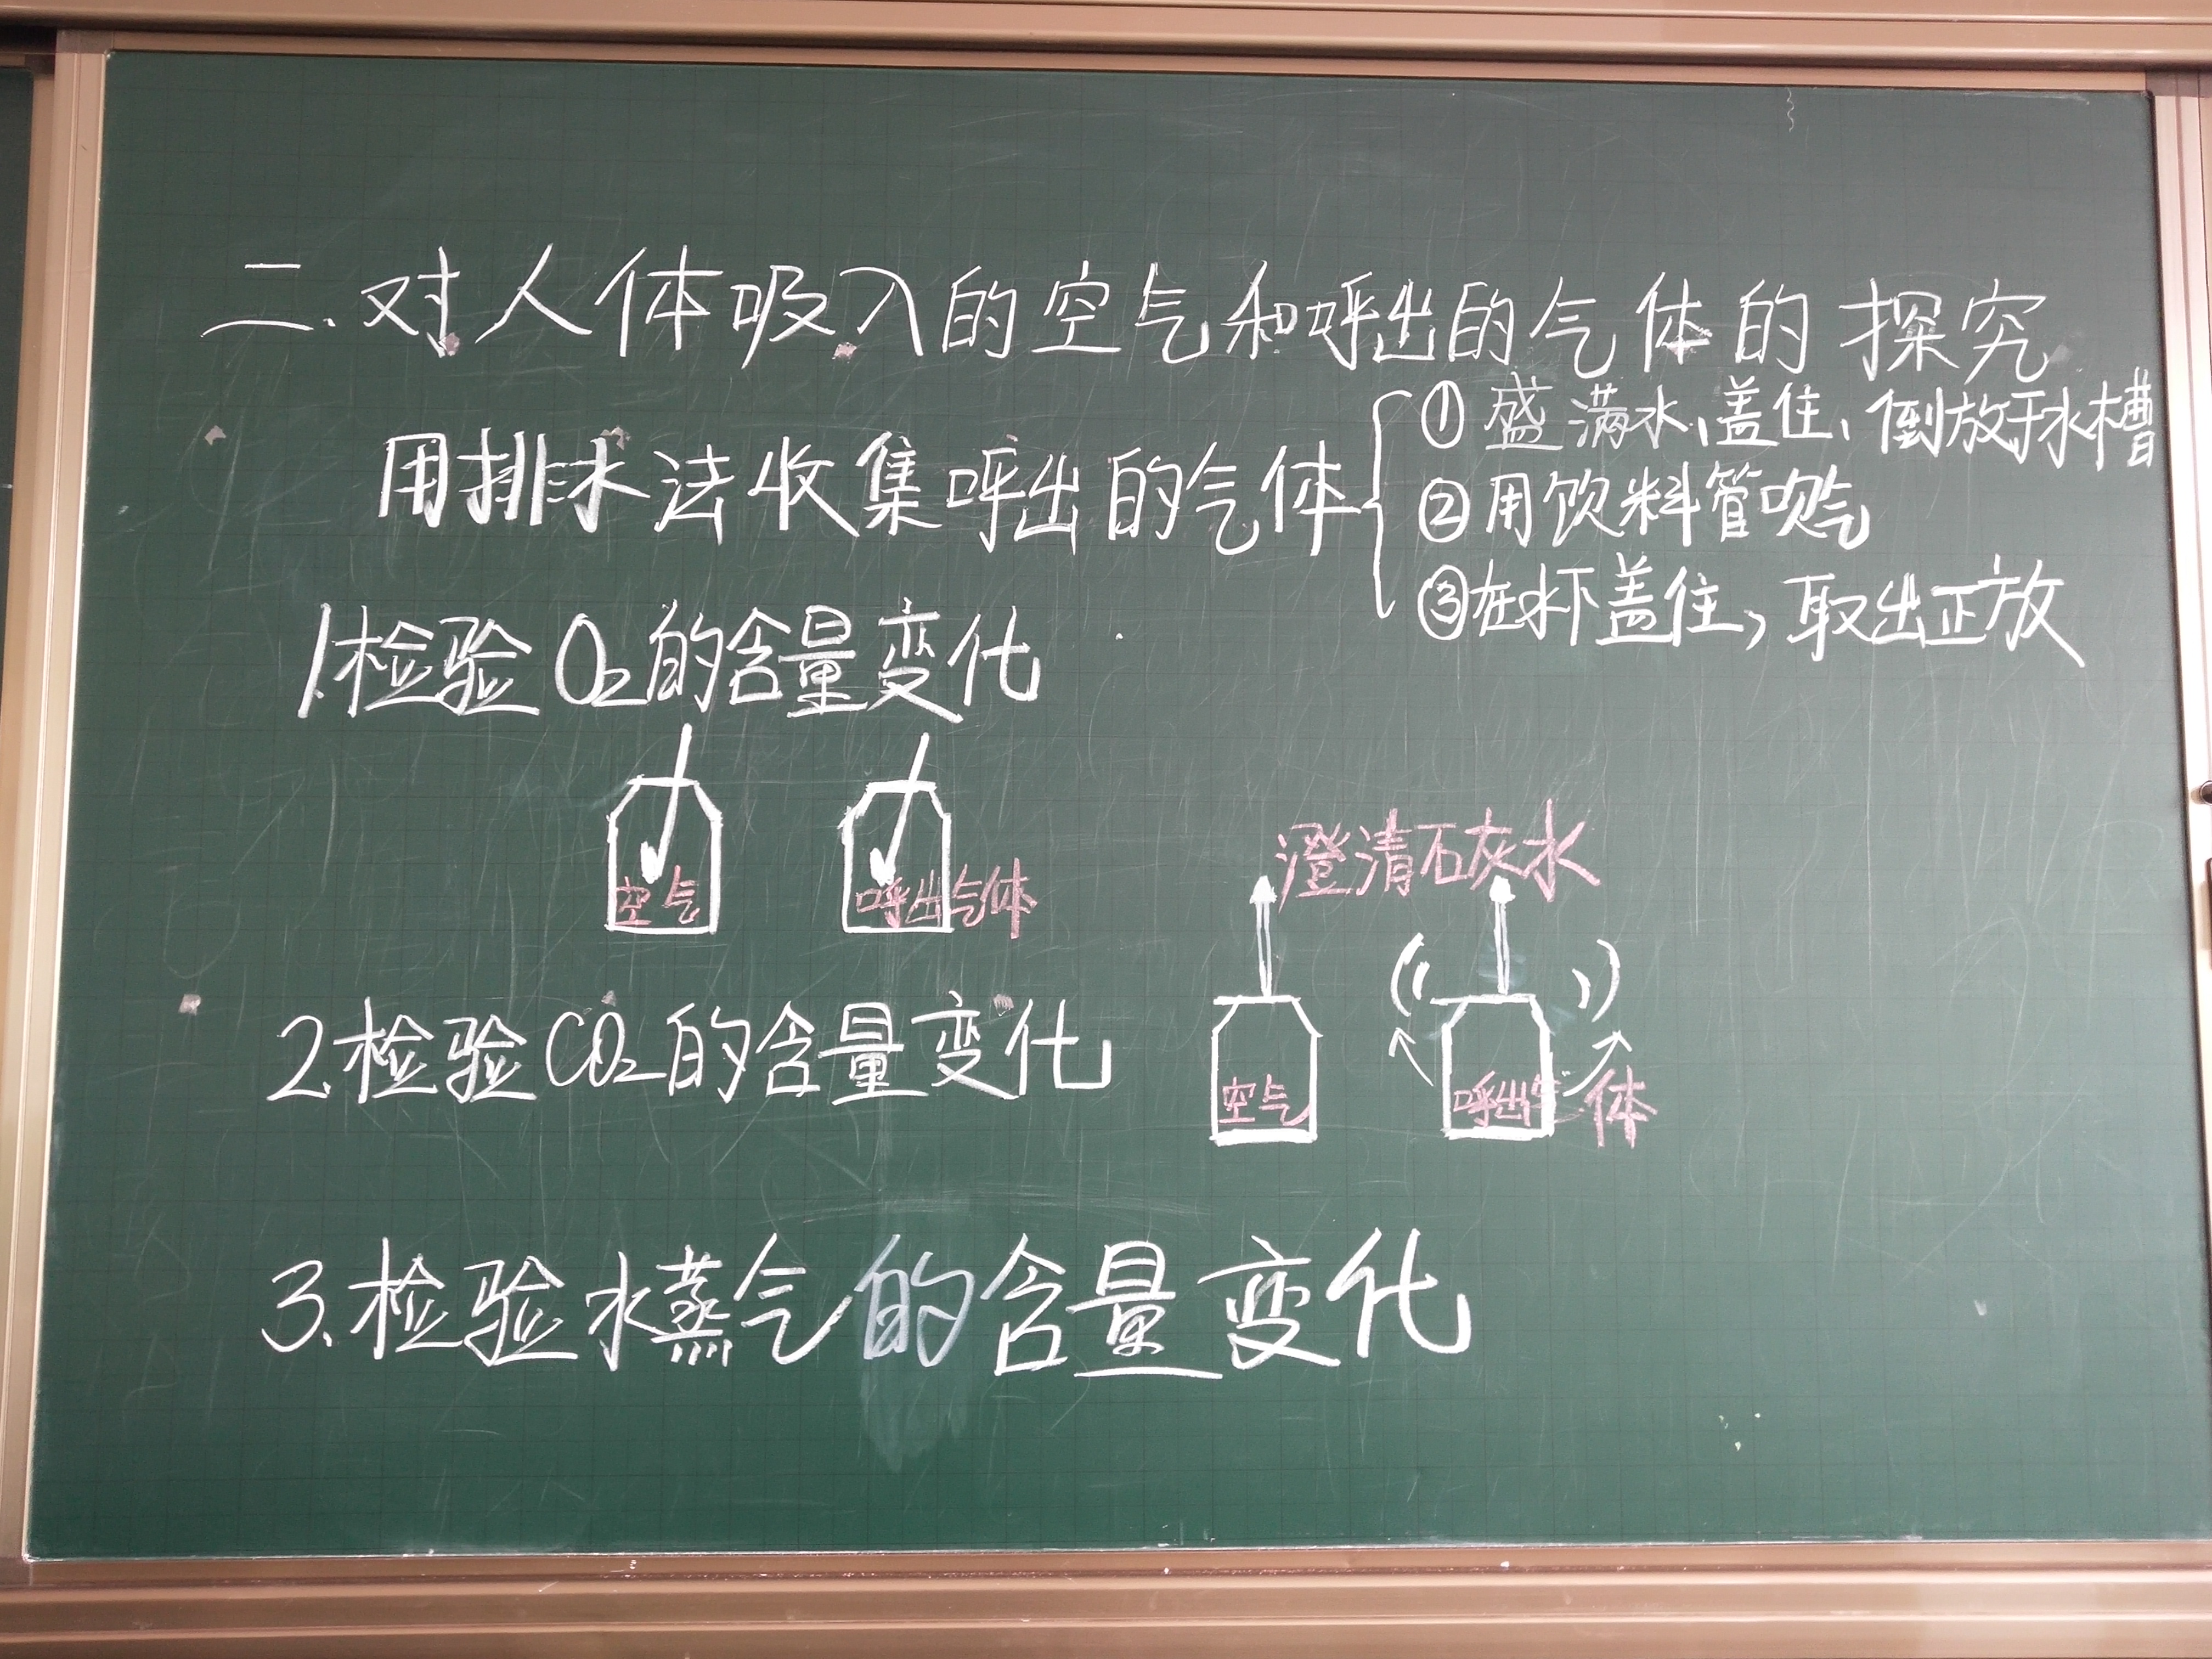 二.对人体吸入的空气和呼出的气体的探究
用排水法收集呼出的气体
①盛满水、盖住、倒放于水槽
②用饮料管吹气
③在水下盖住,取出正放
1.检验O₂的含量变化
空气 呼出气体
澄清石灰水
2.检验CO₂的含量变化
空气 呼出气体
3.检验水蒸气的含量变化